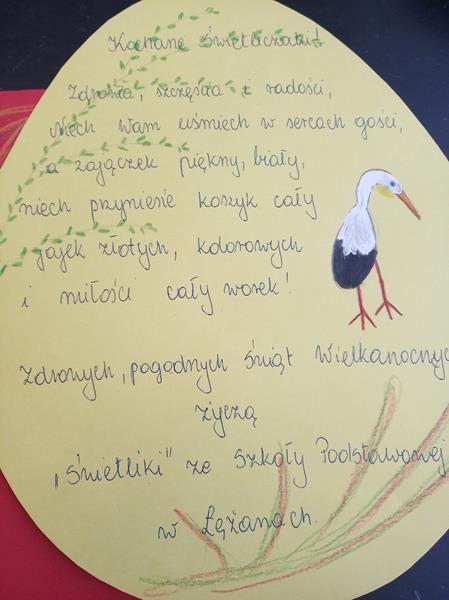 Kochane Świetliczaki!
Zdrowia, szczęścia i radości,
Niech Wam uśmiech w sercach gości,
a zajączek piękny, biały,
niech przyniesie koszyk cały
jajek złotych, kolorowych
i miłości cały worek!
Zdrowych, pogodnych Świąt Wielkanocnyc
życzą
„Świetliki" ze Szkoły Podstawowej
w Łężanach.